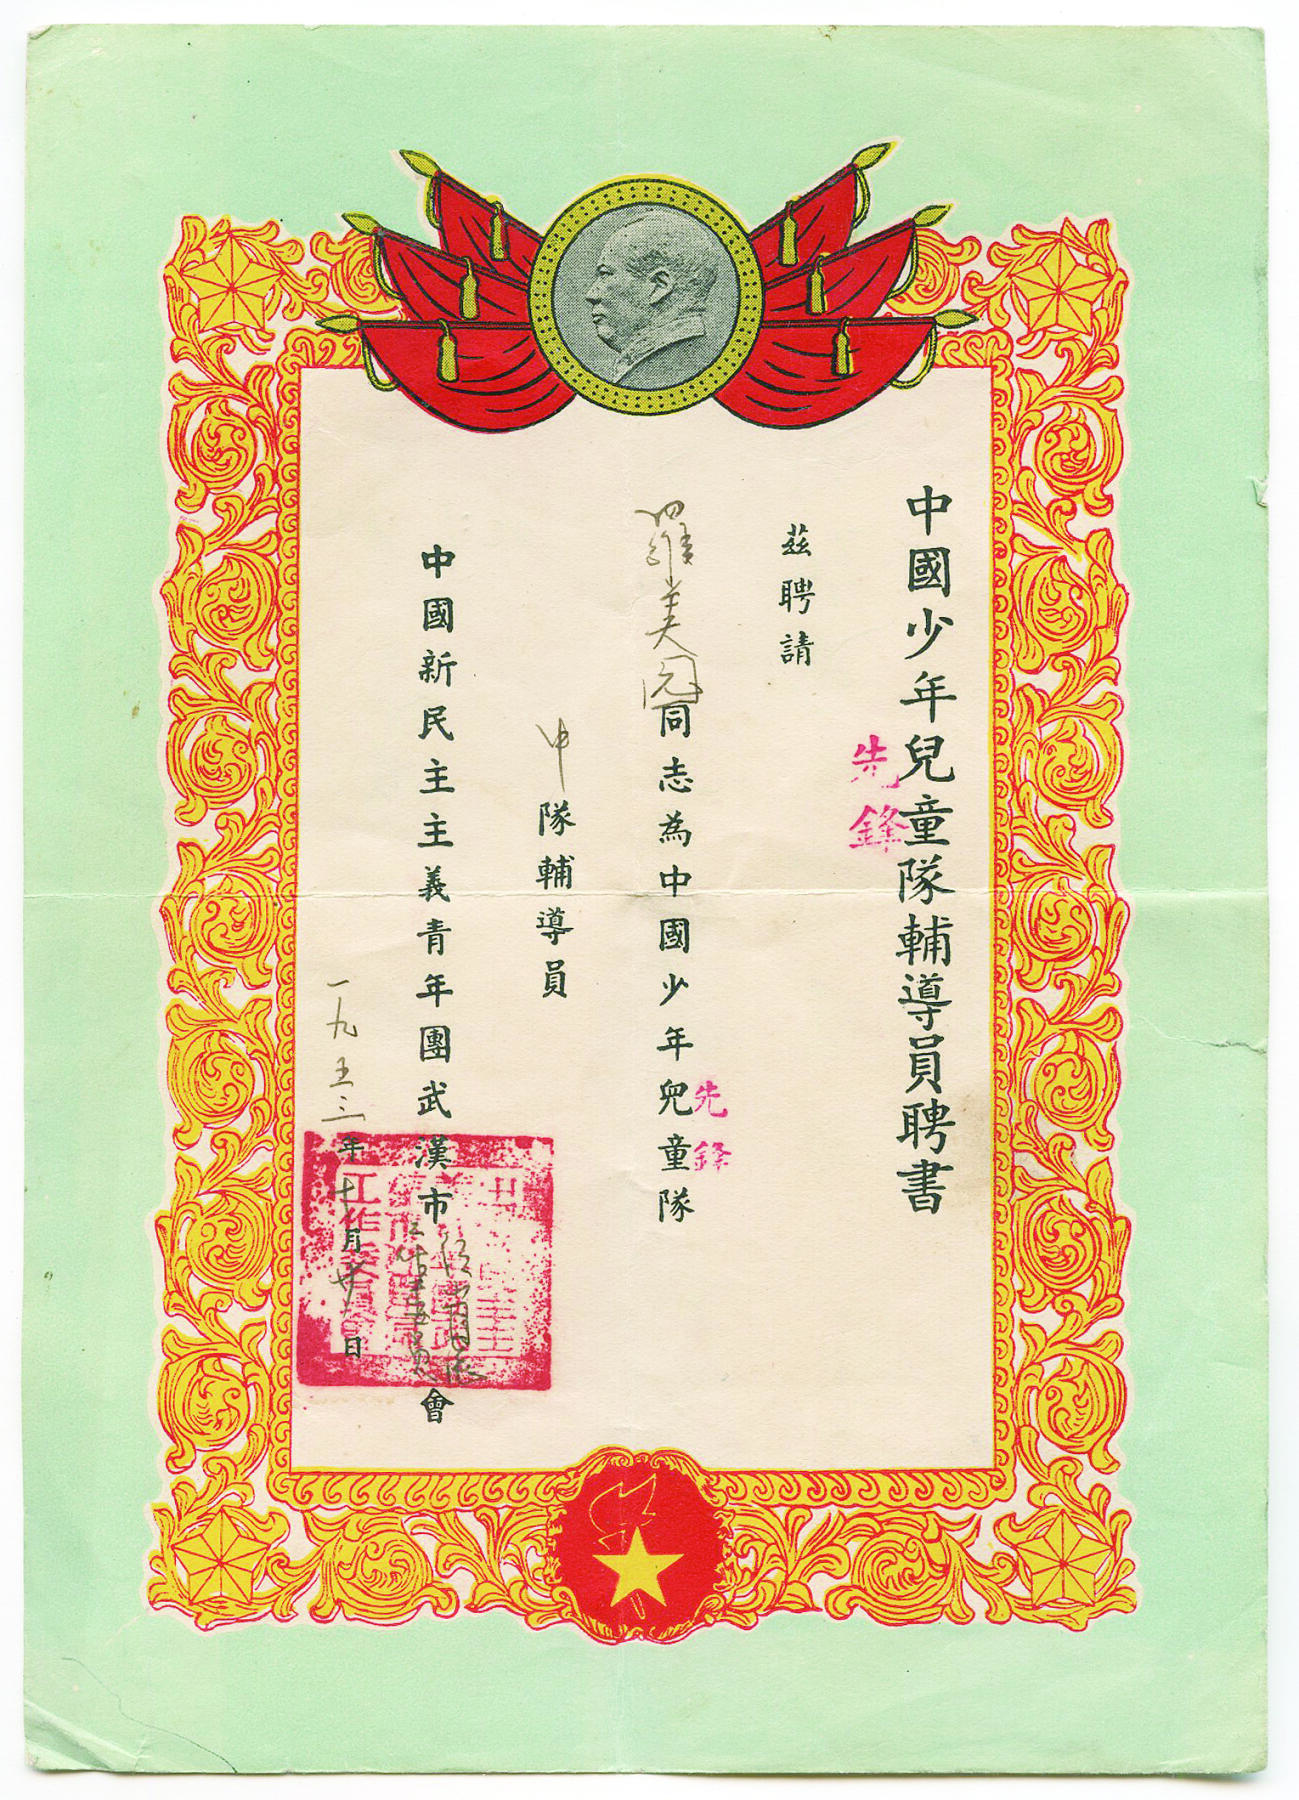 中國少年兒童隊輔導員聘書
先鋒
茲聘請
羅美園同志為中國少年兒童隊
先鋒
中隊輔導員
中國新民主主義青年團武漢市
工作委員會
一九五三年十月廿二日